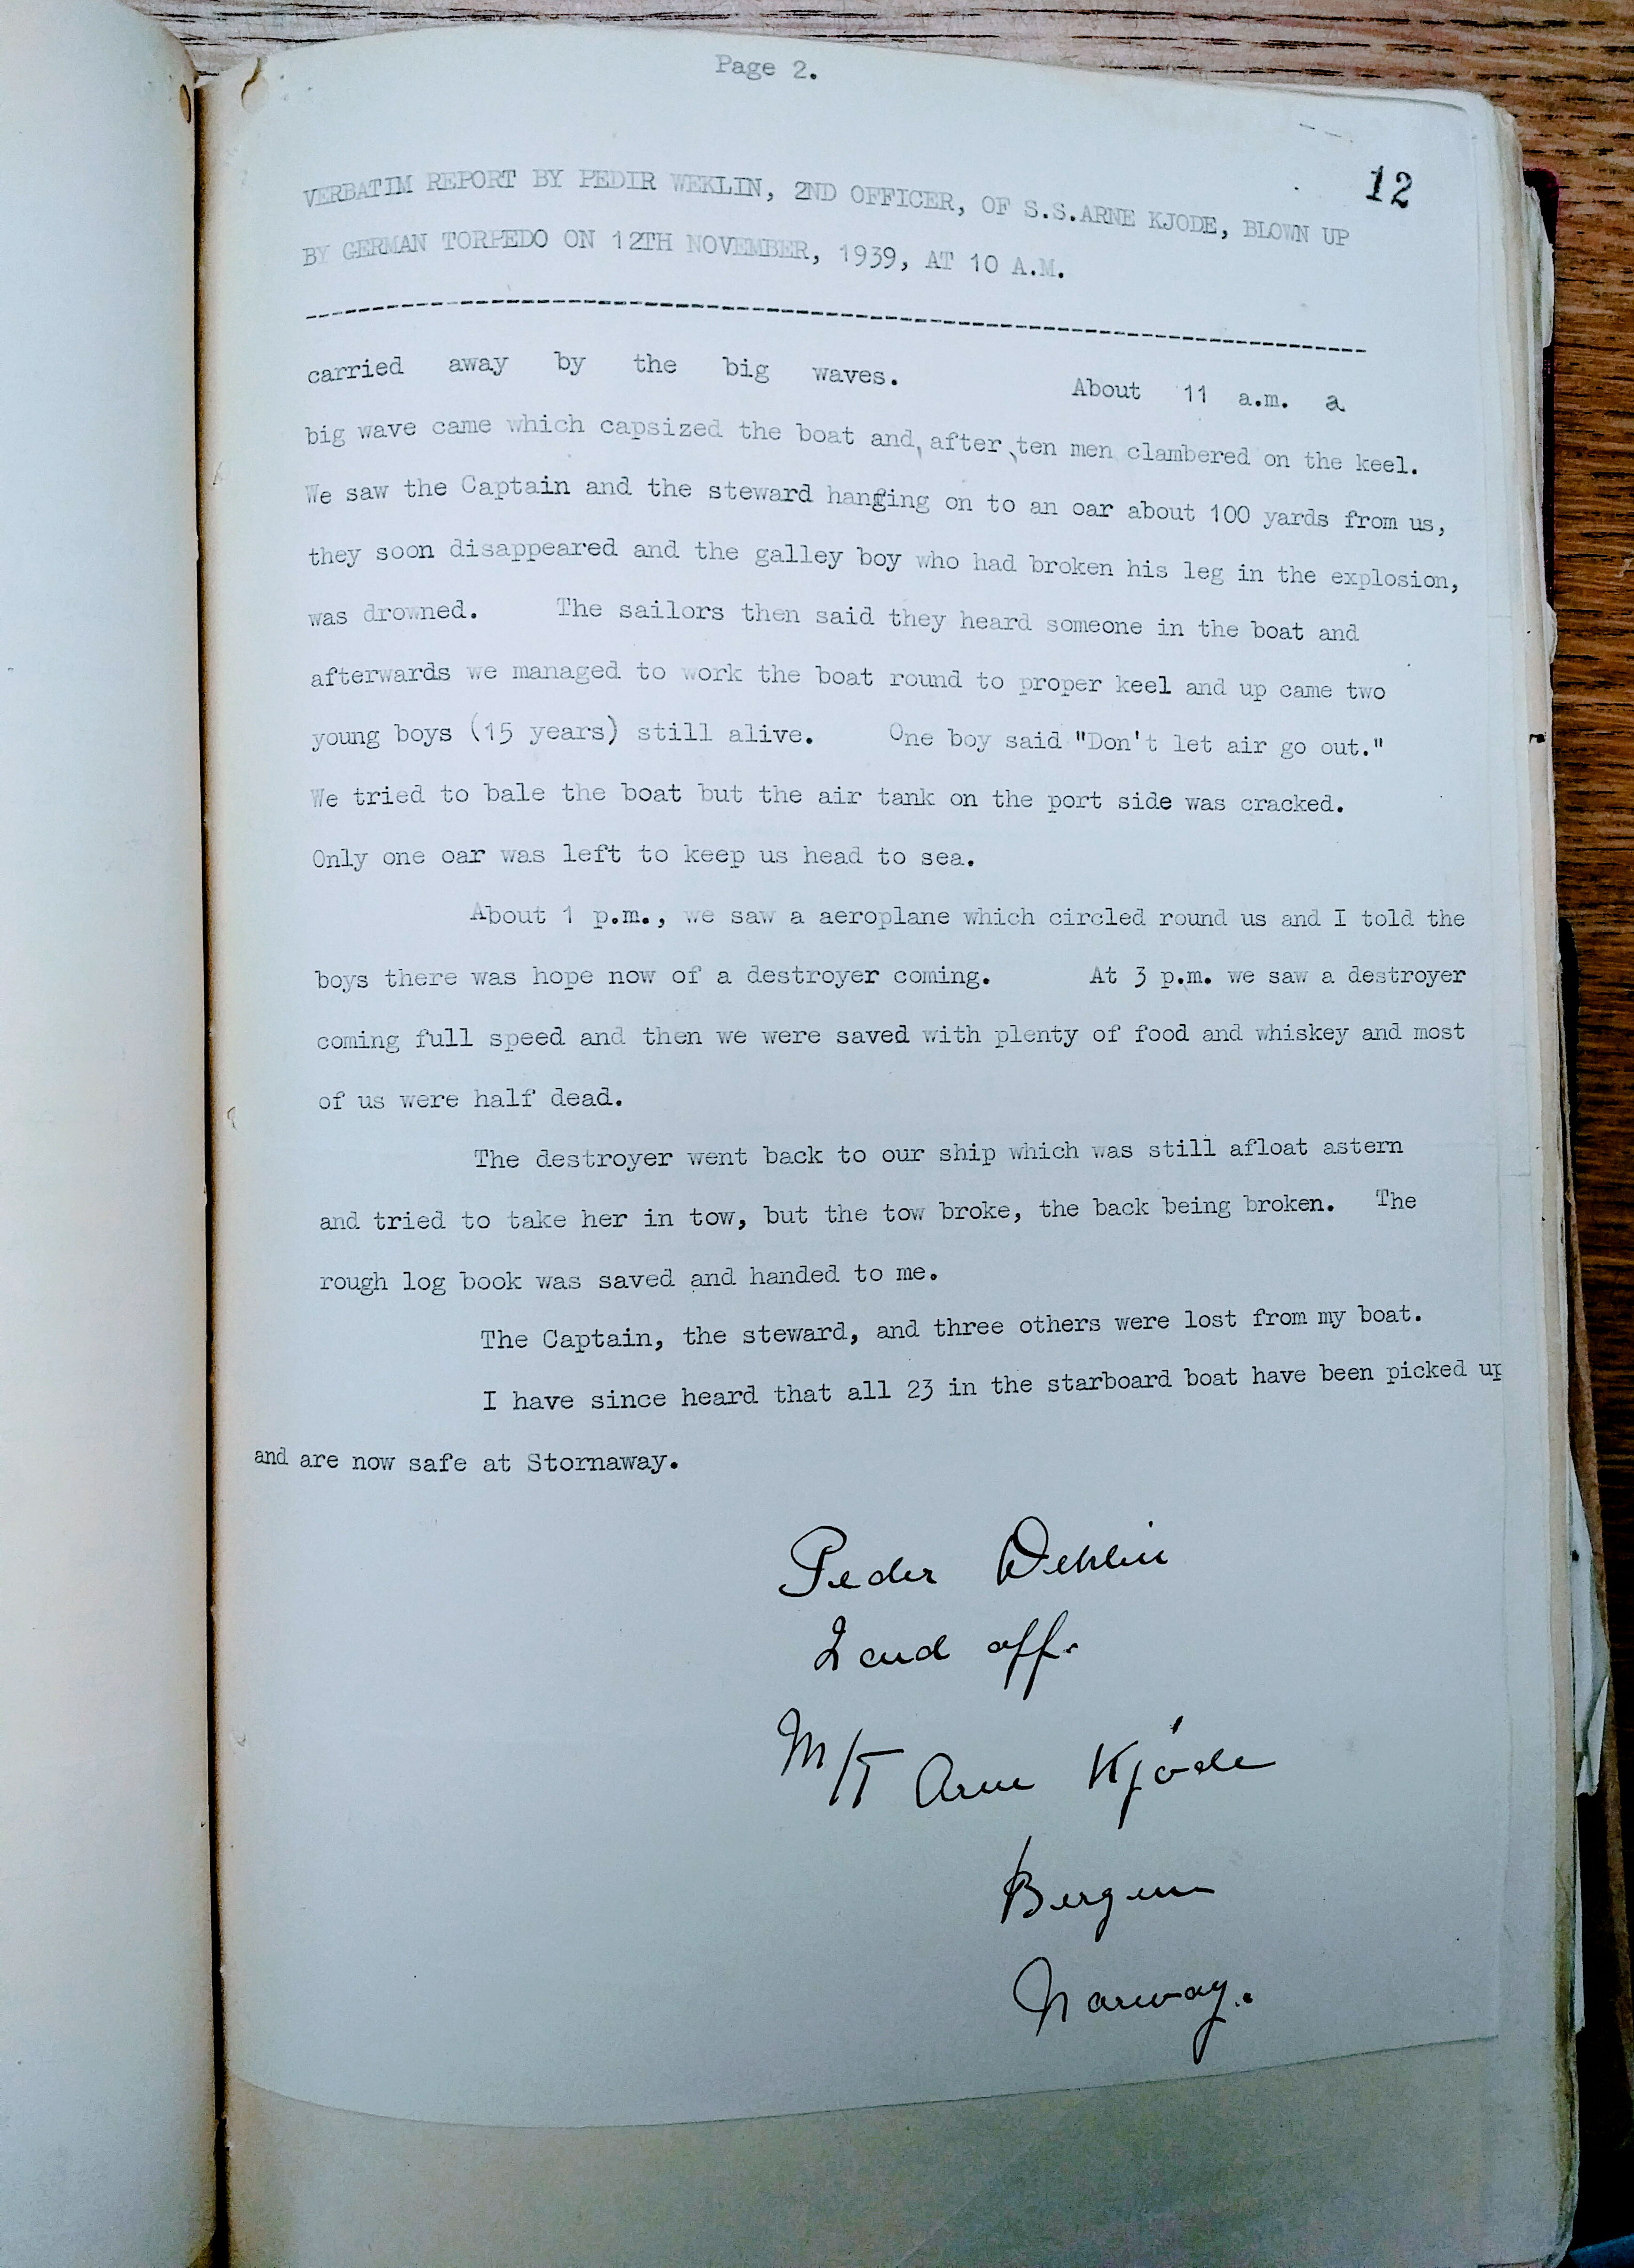 Page 2.
12
VERBATIM REPORT BY PEDIR WEKLIN, 2ND OFFICER, OF S.S.ARNE KJODE, BLOWN UP
BY GERMAN TORPEDO ON 12TH NOVEMBER, 1939, AT 10 A.M.
carried away by the big waves. About 11 a.m. a
big wave came which capsized the boat and, after, ten men clambered on the keel.
We saw the Captain and the steward hanging on to an oar about 100 yards from us,
they soon disappeared and the galley boy who had broken his leg in the explosion,
was drowned. The sailors then said they heard someone in the boat and
afterwards we managed to work the boat round to proper keel and up came two
young boys (15 years) still alive. One boy said "Don't let air go out."
We tried to bale the boat but the air tank on the port side was cracked.
Only one oar was left to keep us head to sea.
About 1 p.m., we saw a aeroplane which circled round us and I told the
boys there was hope now of a destroyer coming. At 3 p.m. we saw a destroyer
coming full speed and then we were saved with plenty of food and whiskey and most
of us were half dead.
The destroyer went back to our ship which was still afloat astern
and tried to take her in tow, but the tow broke, the back being broken. The
rough log book was saved and handed to me.
The Captain, the steward, and three others were lost from my boat.
I have since heard that all 23 in the starboard boat have been picked up
and are now safe at Stornaway.
Peder Wehlin
2cnd off.
M/T Arne Kjöde
Bergen
Norway.